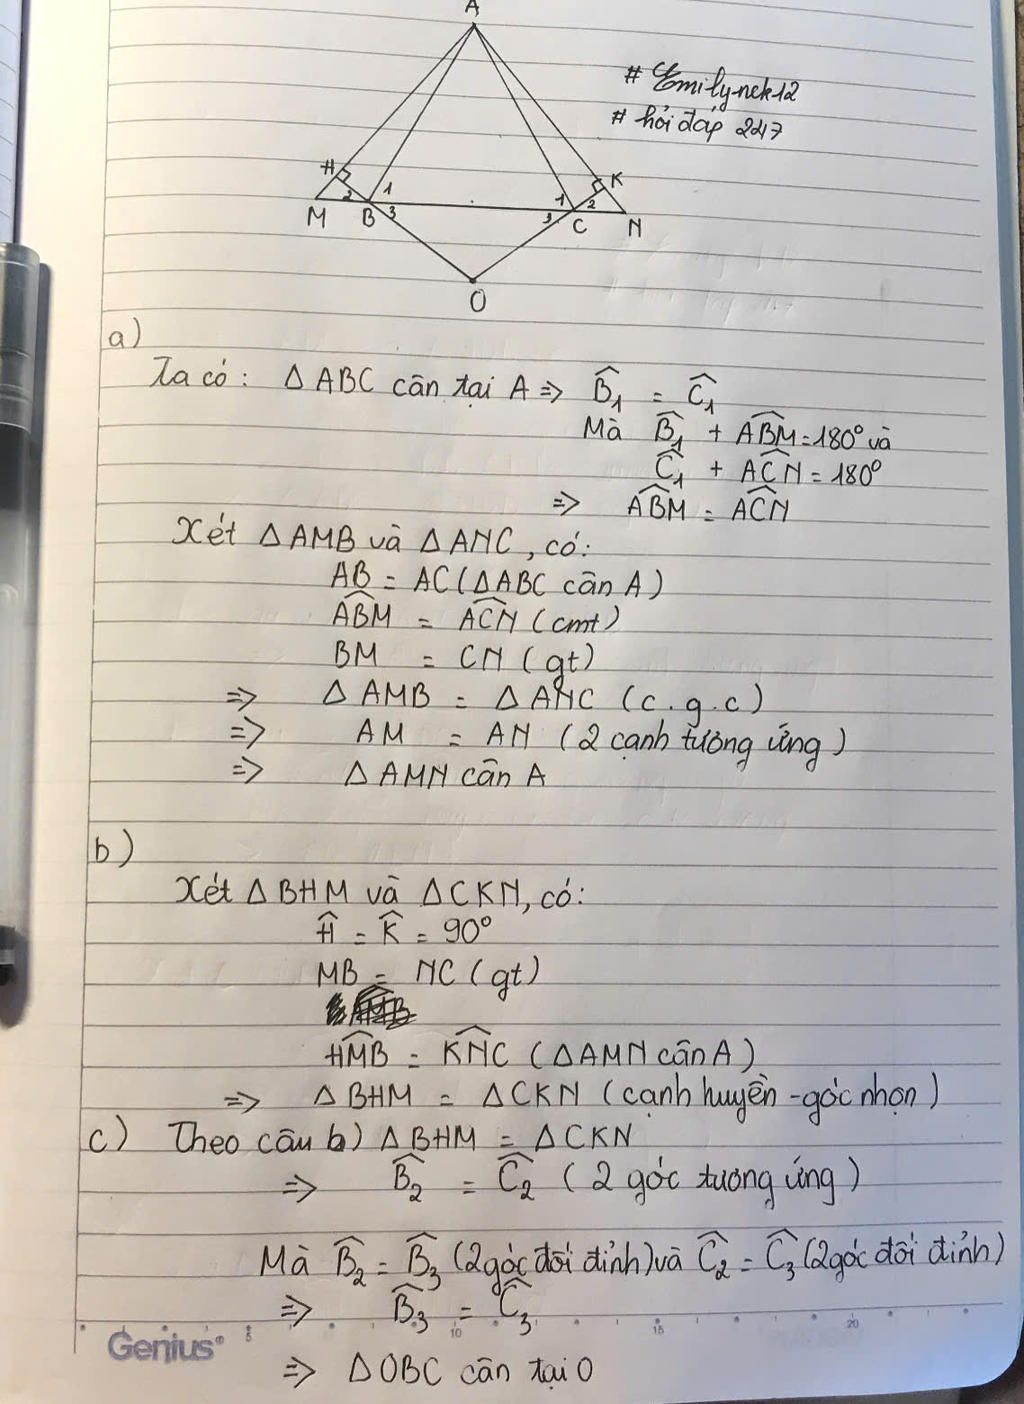 A
# Emilynek12
# hỏi đáp 247
H
K
2
1
1
2
M
B
3
3
C
N
O
a)
Ta có: △ABC cân tại A => B̂₁ = Ĉ₁
Mà B̂₁ + AB̂M = 180° và
Ĉ₁ + AĈN = 180°
=> AB̂M = AĈN
Xét △AMB và △ANC, có:
AB = AC (△ABC cân A)
AB̂M = AĈN (cmt)
BM = CN (gt)
=> △AMB = △ANC (c.g.c)
=> AM = AN (2 cạnh tương ứng)
=> △AMN cân A
b)
Xét △BHM và △CKN, có:
Ĥ = K̂ = 90°
MB = NC (gt)
HM̂B = KN̂C (△AMN cân A)
=> △BHM = △CKN (cạnh huyền - góc nhọn)
c) Theo câu b) △BHM = △CKN
=> B̂₂ = Ĉ₂ (2 góc tương ứng)
Mà B̂₂ = B̂₃ (2 góc đối đỉnh) và Ĉ₂ = Ĉ₃ (2 góc đối đỉnh)
=> B̂₃ = Ĉ₃
Genius® 5 10 15 20
=> △OBC cân tại O